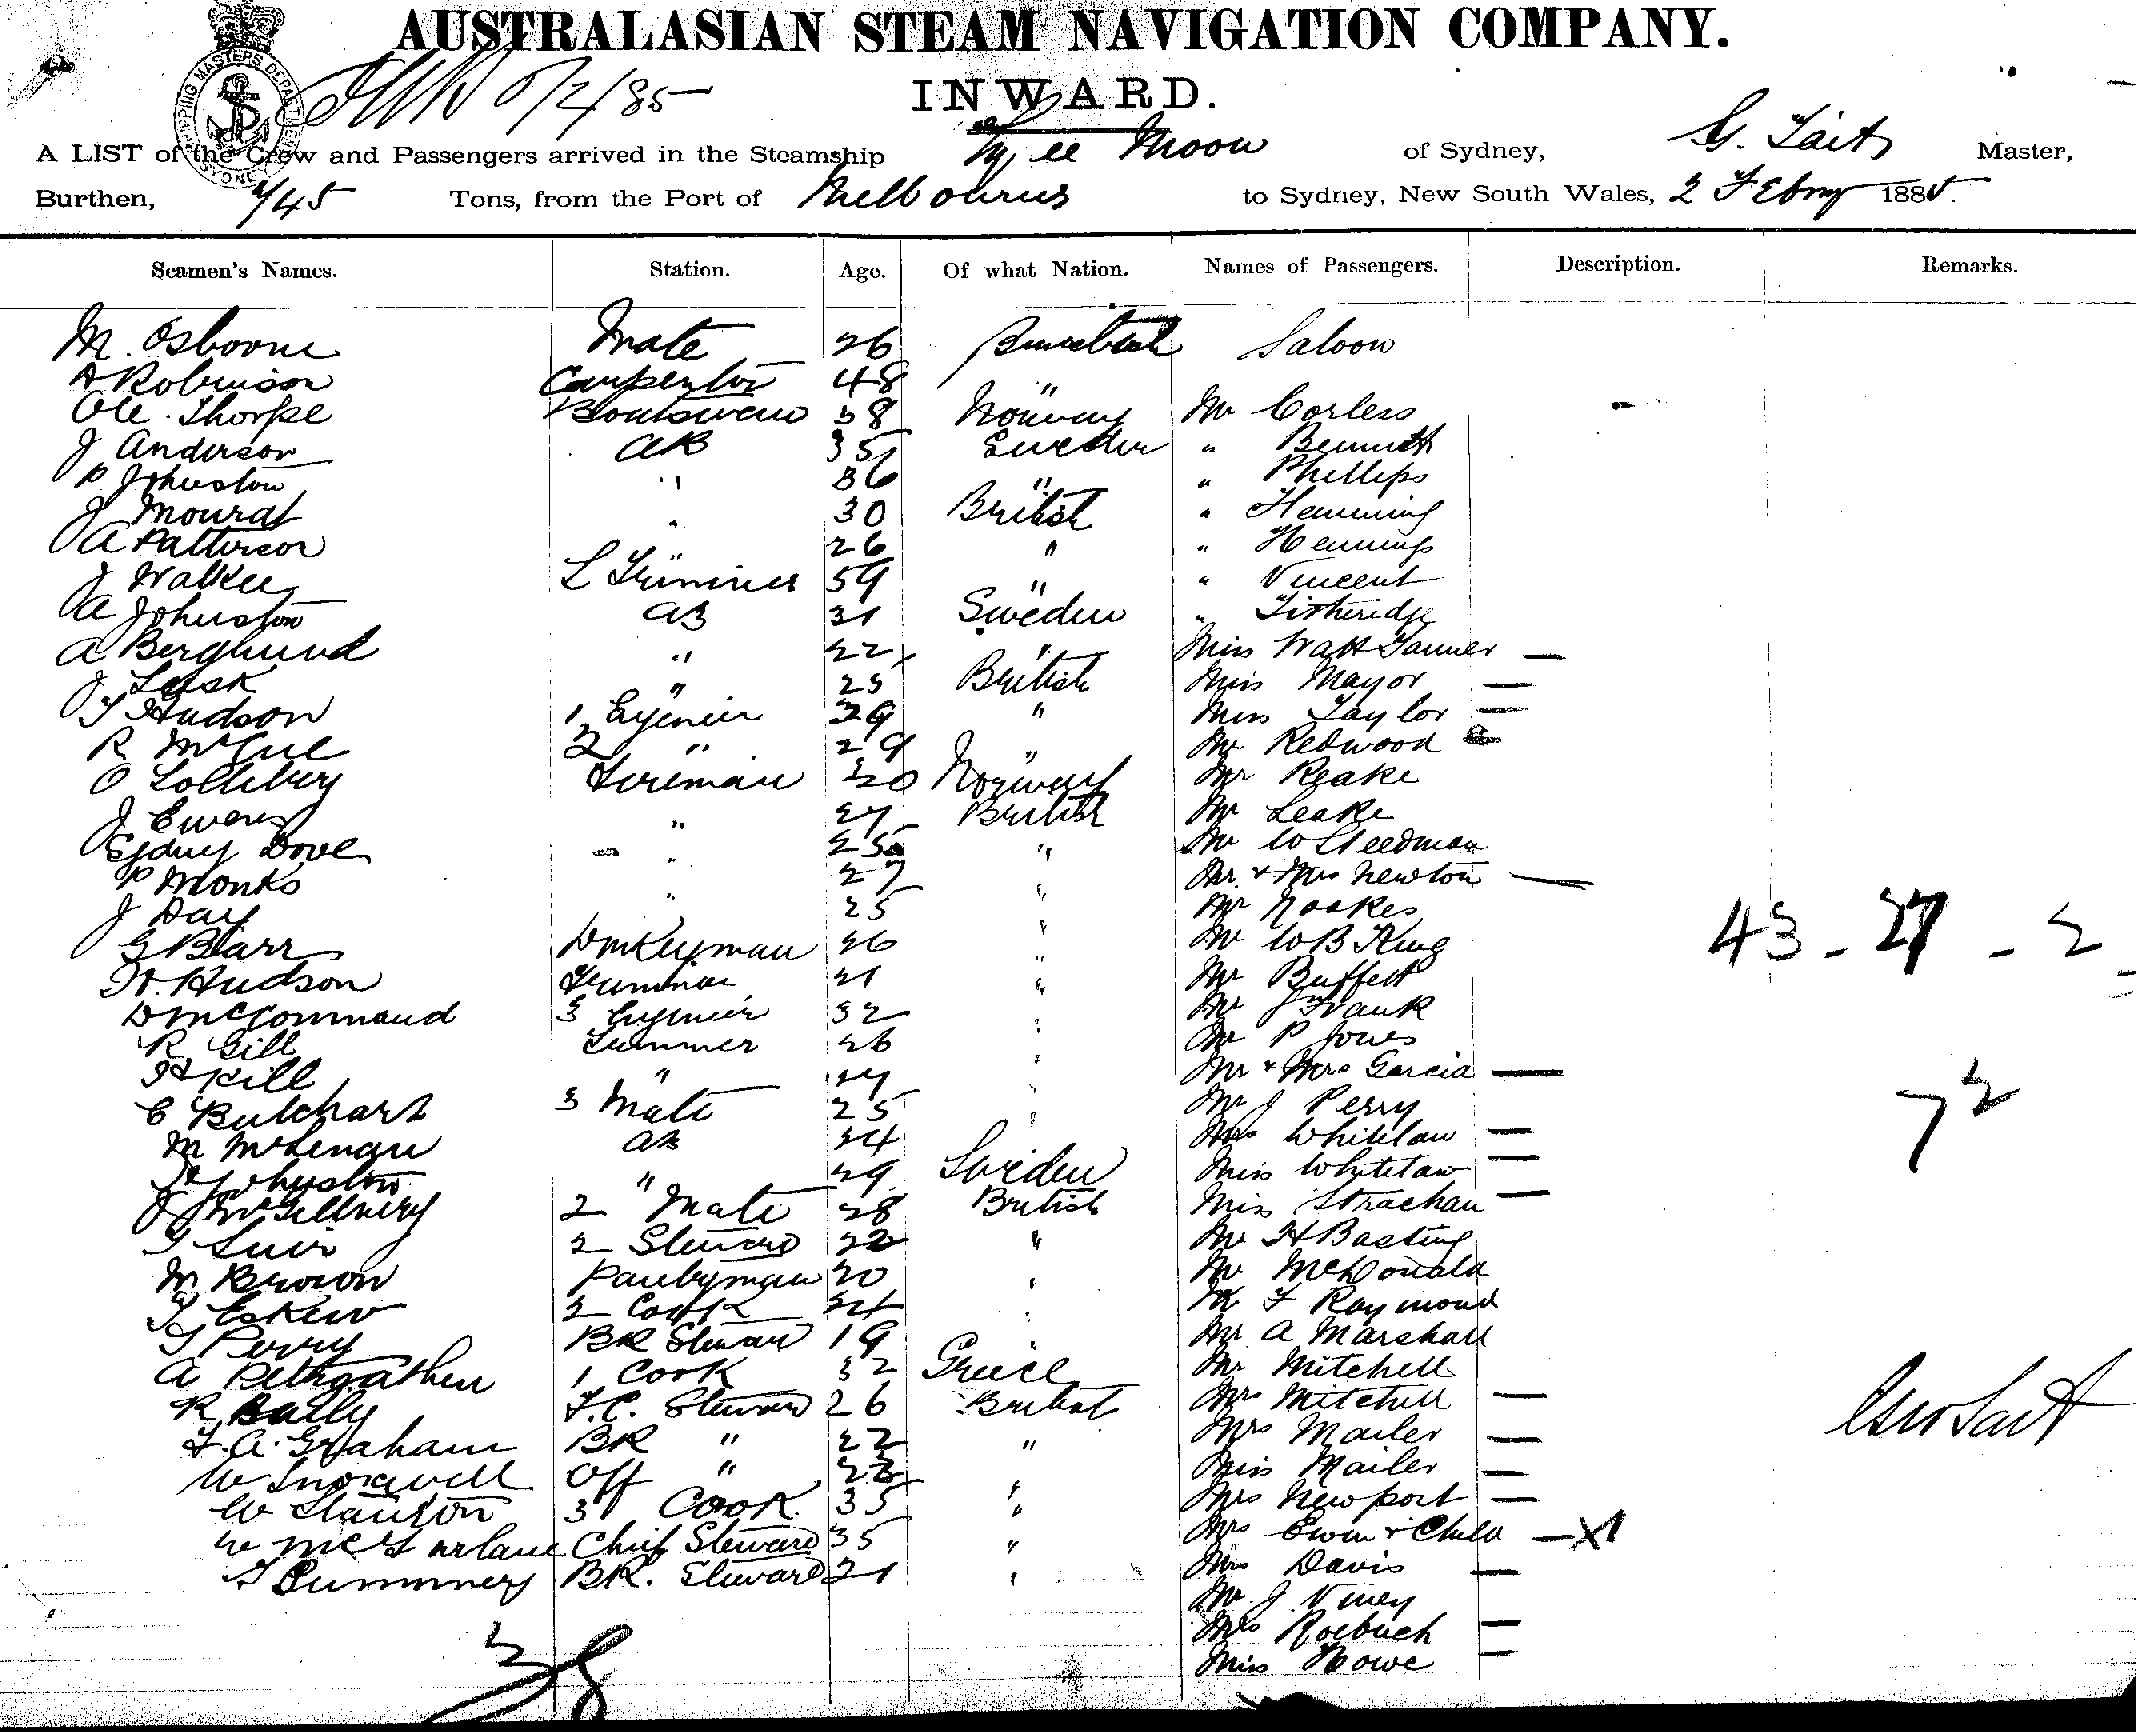 AUSTRALASIAN STEAM NAVIGATION COMPANY.
SHIPPING MASTERS DEPARTMENT SYDNEY
5/2/85
INWARD.
A LIST of the Crew and Passengers arrived in the Steamship Ly ee Moon of Sydney, G. Tait Master,
Burthen, Tons, from the Port of Melbourne to Sydney, New South Wales, 2 Febry 1885.
Seamen's Names. Station. Age. Of what Nation. Names of Passengers. Description. Remarks.
M. Osborne Mate 26 Saloon
A Robinson Carpenter 48 "
Ole Thorpe Boatswain 38 Norway Mr Corless
J Anderson AB 35 Sweden " Bennett
P Johnston " 36 " " Phillips
J Mourat " 30 British " Hemming
A Patterson " 26 " " Hennings
J Walker L Trimmer 59 " " Vincent
A Johnston AB 31 Sweden " Titheridge
A Berglund " 22 " Miss Watt Tanner —
J Leask " 25 British Miss Mayor —
T Hudson 1 Engineer 39 " Miss Taylor —
R McCue 2 " 29 " Mr Redwood
O Solleberg Fireman 20 Norway Mr Reake
J Ewens " 27 British Mr Leake
Sydney Dove " 25 " Mr W Steedman
P Monks " 27 " Mr & Mrs Newton —
J Day " 25 " Mr Noakes
G Blarr Dnkeyman 26 " Mr W B King 43 - 27 - 2
W. Hudson Trimmer 21 " Mr Buffett
D McCommand 3 Engineer 32 " Mr J Frank
R Gill Trimmer 26 " Mr P Jones
H Kill " 27 " Mr & Mrs Garcia —
C Butchart 3 Mate 25 " Mr J Perry 72
M AB 24 Mrs Whitelaw —
" 29 Sweden Miss Whitelaw —
J McGillivery 2 Mate 28 British Miss Strachan —
2 Steward 22 " Mr H Basting
M Brown Pantryman 20 " Mr McDonald
T Eskew 2 Cook 24 " Mr F Raymond
T Perry BR Steward 19 " Mr A Marshall
A 1 Cook 32 Greece Mr Mitchell
R Bailly F.C. Steward 26 British Mrs Mitchell — Geo Tait
F. A. Graham BR " 22 " Mrs Mailer —
W Off " 22 " Miss Mailer —
W Stanton 3 Cook 35 " Mrs Newport —
W McFarlane Chief Steward 35 " Mrs Ewin & Child — X1
T Cummnery BR. Steward 21 " Mrs Davis —
Mr J. Viney
Mrs Roebuck —
Miss Howe —
38